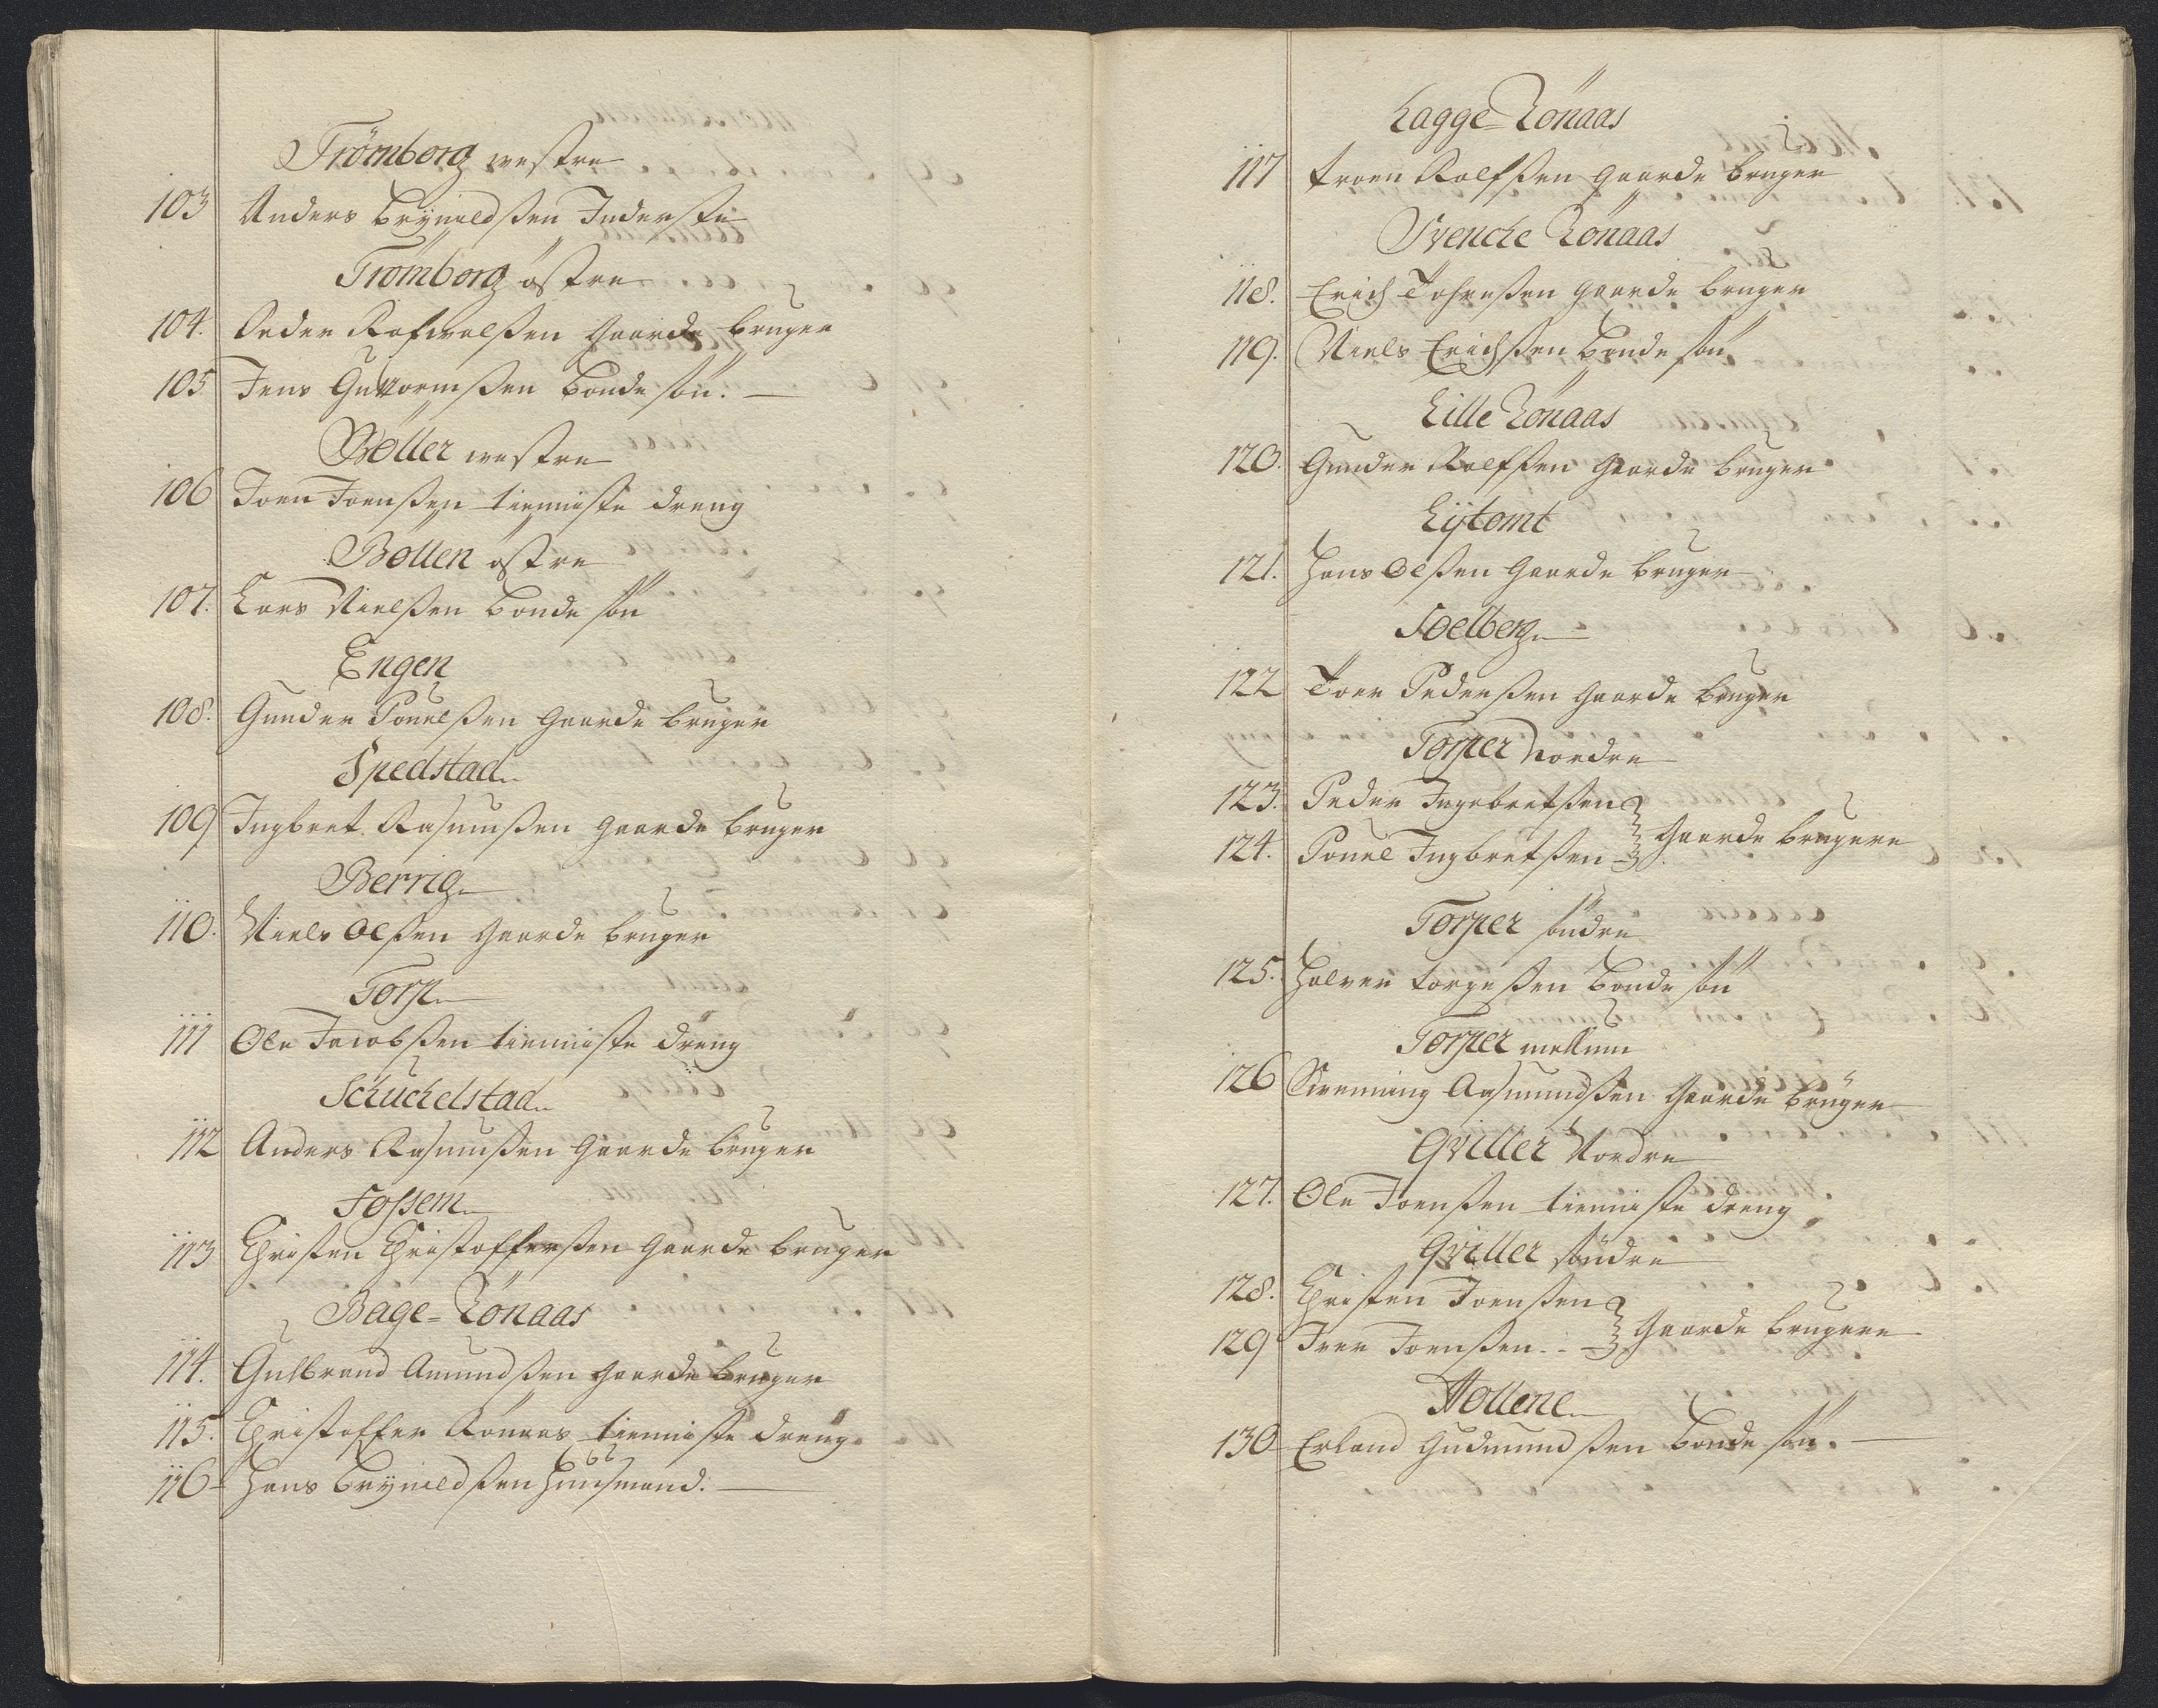 Trömborg westre
103 Anders Bryneldßen Inderste
Trömborg östre
104. Peder Rasmusßen Gaarde bruger
105 Jens Guttormßen bonde sön.
Böller westre
106 Joen Joenßen tienniste dreng
Böllen östre
107. Lars Nielßen bonde sön
Engen
108. Gunder Pouelßen Gaarde bruger
Spedstad
109 Ingbret Rasmußen gaarde bruger
Berrig
110. Niels Olßen gaarde bruger
Torp
111 Ole Jacobßen tienniste dreng
Schuchelstad
112 Anders Rasmußen Gaarde bruger
Fossem
113 Christen Christofferßen Gaarde bruger
Bage-Rönaas
114. Gulbrand Amundßen gaarde bruger
115. Christoffer Rönaas tienniste dreng
116 Hans Bryneldßen Huusmand.
Lagge-Rönaas
117 Troen Rolfßen gaarde bruger
Svenche Rönaas
118. Erich Tohreßen gaarde bruger
119. Niels Erichßen bonde sön
Lille Rönaas
120. Gunder Rolfßen Gaarde bruger
Lijtomt
121. Hans Olßen Gaarde bruger
Soelberg
122 Toer Pederßen Gaarde bruger
Torper nordre
123. Peder Ingebretßen
124. Pouel Ingbretßen Gaarde brugere
Torper söndre
125. Halvor Torgeßen bonde sön
Torper mellum
126 Svenning Aasmundßen Gaarde bruger
Qviller Nordre
127. Ole Joenßen tienniste dreng
Qviller söndre
128. Christen Joenßen
129 Iver Joenßen Gaarde brugere
Hollene
130 Erland Gudmundßen bonde sön.